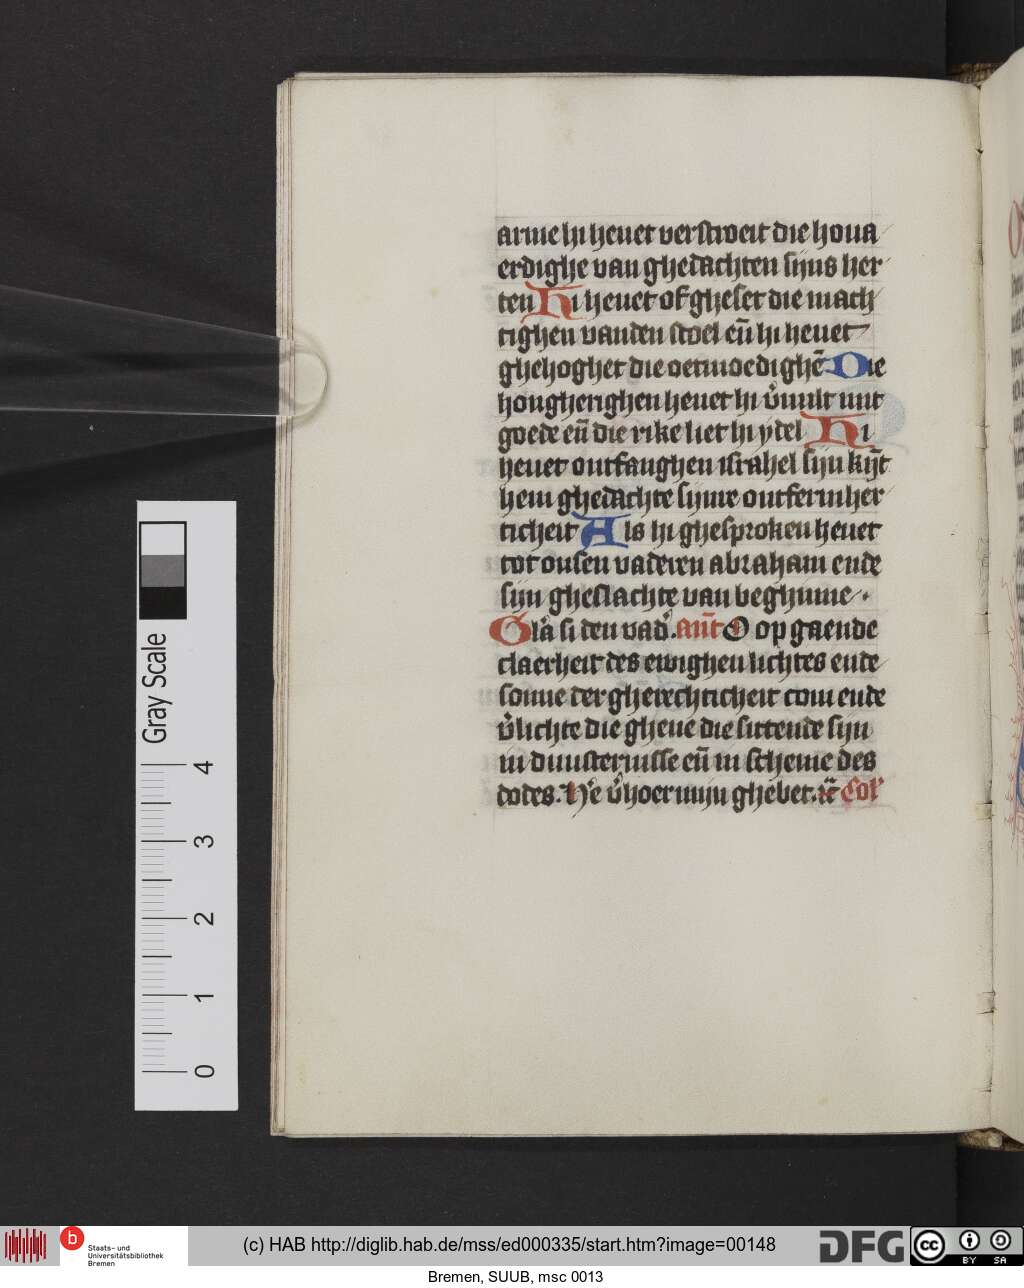 arme hi heuet verstroeit die houa
erdighe van ghedachten sijns her
ten Hi heuet of gheset die mach
tighen vanden stoel eñ hi heuet
ghehoghet die oetmoedighē Die
hongherighen heuet hi v̾uult mit
goede eñ die rike liet hi ydel Hi
heuet ontfanghen israhel sijn kijt
hem ghedachte sijnre ontfermher
ticheit Als hi ghesproken heuet
tot onsen vaderen abraham ende
sijn gheslachte van beghinne ·
Gl'a si den vad'. ant̄ O opgaende
claerheit des ewighen lichtes ende
sonne der gherechticheit com ende
v̾lichte die ghene die sittende sijn
in duusternisse eñ in scheme des
dodes. H'e v̾hoer mijn ghebet. et̄ Col'
Gray Scale
4
3
2
1
0
b
Staats- und
Universitätsbibliothek
Bremen
(c) HAB http://diglib.hab.de/mss/ed000335/start.htm?image=00148
DFG
cc
BY SA
Bremen, SUUB, msc 0013